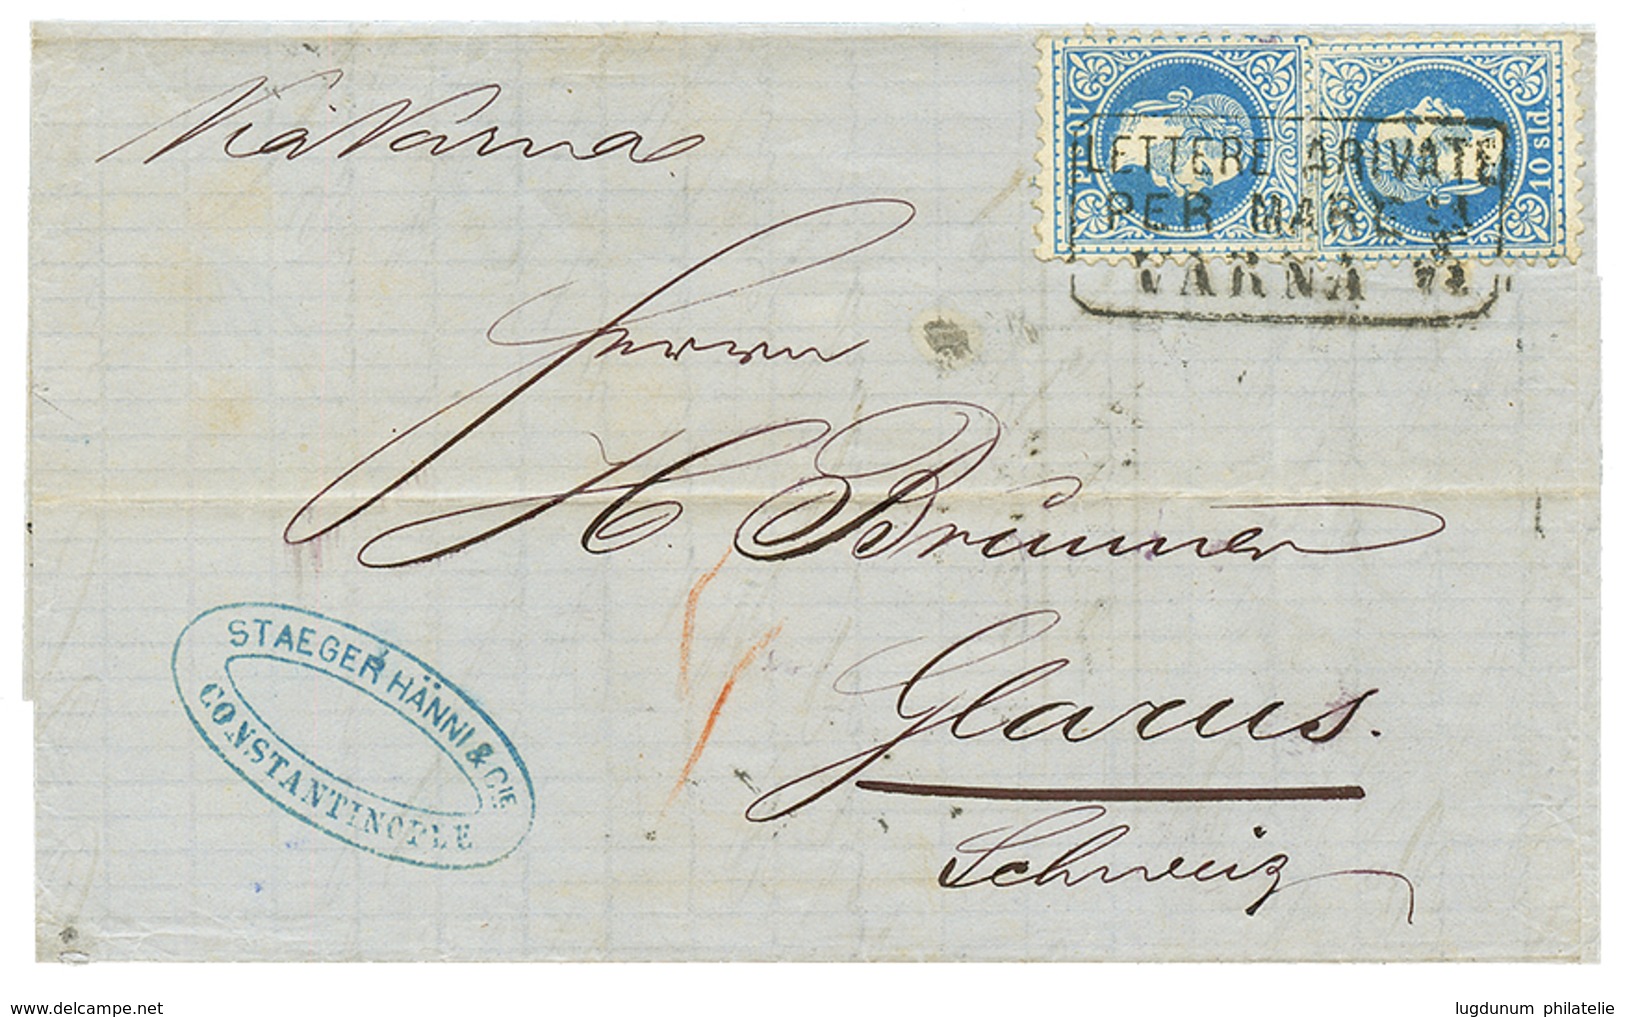 Via Varna
10 sld.
10 sld.
LETTERE ARIVATE
PER MARE
VARNA
Herrn
H. Brunner
Glarus.
Schweiz
STAEGER HÄNNI & CIE
CONSTANTINOPLE
delcampe.net
lugdunum philatelie